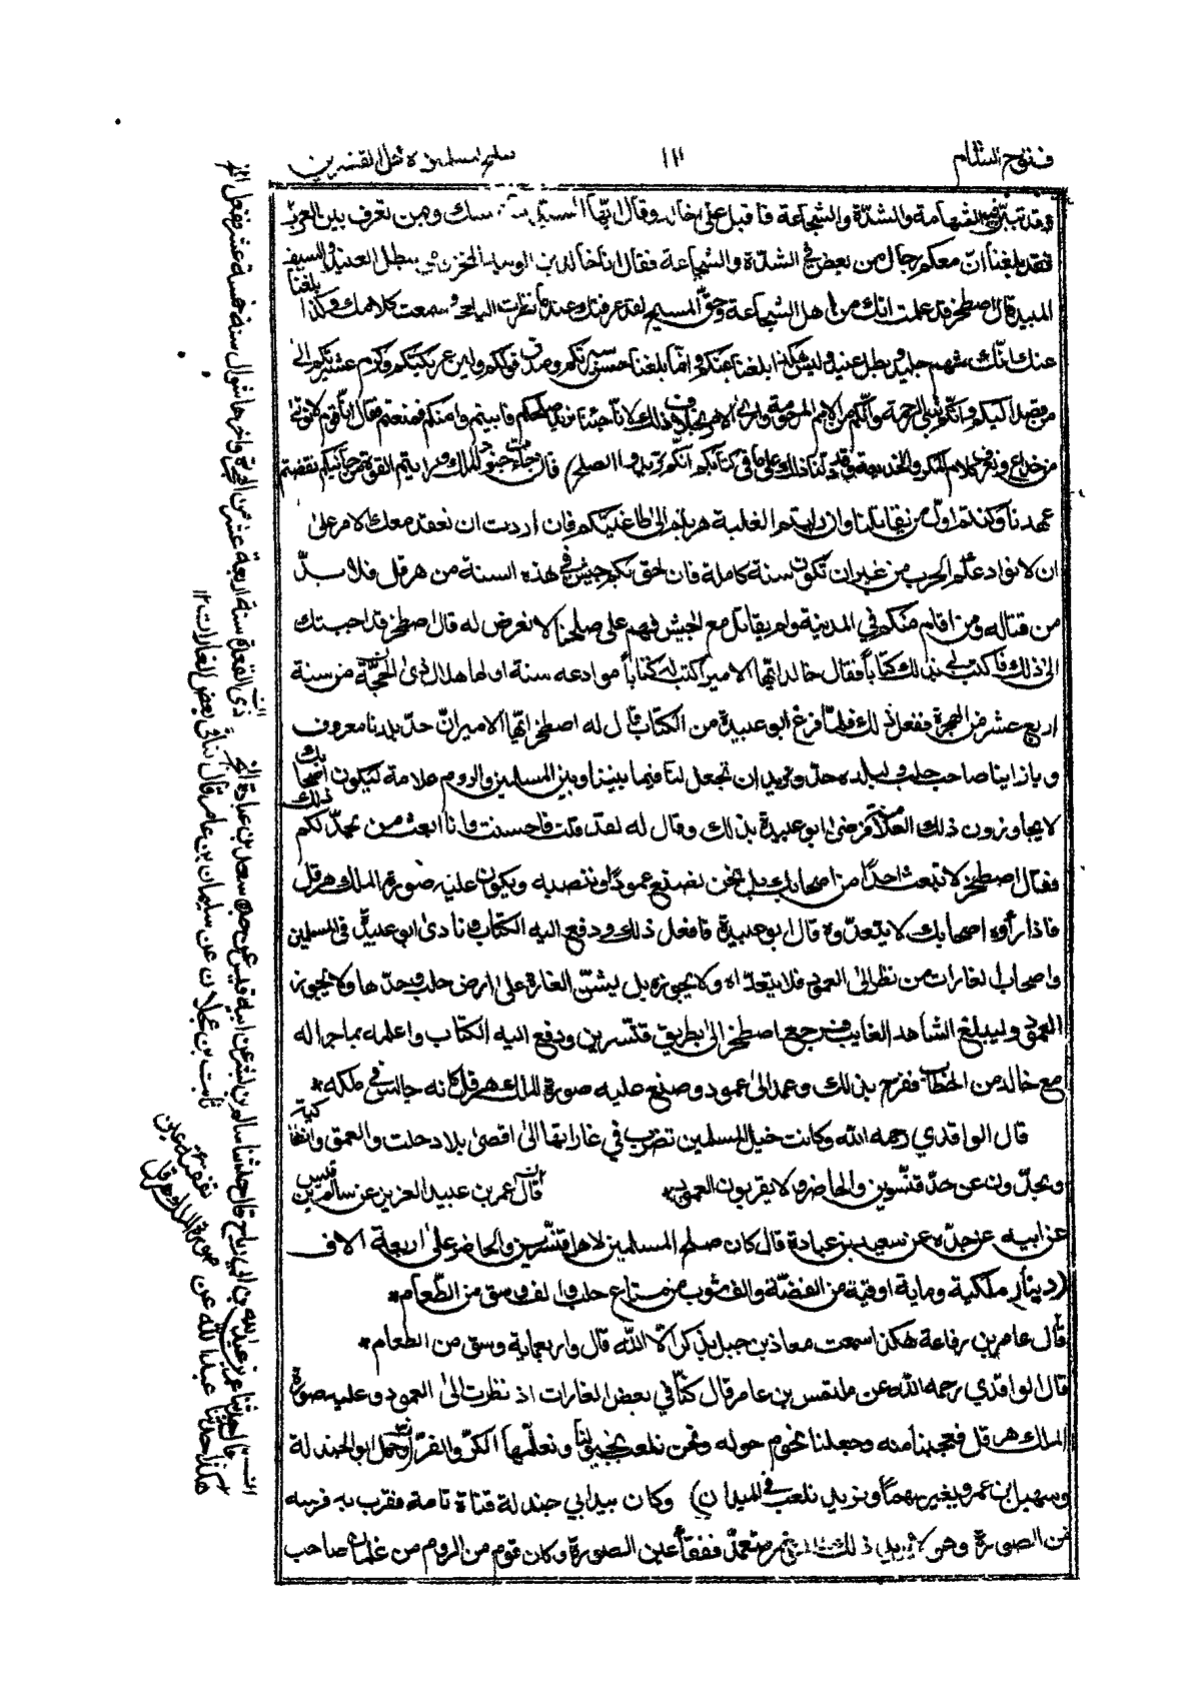 فتوح الشام
١١٢
صلح المسلمين لاهل القنسرين
قد تبين الشهامة والشدّة والشجاعة فاقبل على خالد وقال ايّها السيد من تعرف بين العرب
فقد بلغنا انّ معكم رجال من بعض في الشدّة والشجاعة فقال انا خالد بن الوليد المخزومي بطل العنيد والسيف
المبيد قال اصطخر قد علمت انك من اهل الشجاعة وحقّ المسيح لقد عرفتك وعندما نظرت اليك وسمعت كلامك وكذا بلغنا
عنك انّك شهم جليد بطل عنيد وليس هكذا بلغنا عنكم وانّما بلغنا حسن سيرتكم وصدق قولكم ولين عريكتكم وكرم عشيرتكم الى
من قصد اليكم وانكم نبي الرحمة وانّكم من الامم المرحومة وارى الامر بخلاف ذلك لانّا جئنا نريد صلحكم فابيتم وامنكم فمنعتم فقال انّا قوم لا نؤتى
من خداع ونعرف كلام المكر والخديعة وقد دلّنا ذلك على ما في كتابكم انّكم تريدوا الصلح فان جاءت جنود الملك ورايتم القوة من جانبكم نقضتم
عهدنا وكنتم اول من يقاتلنا وان رايتم الغلبة هربتم الى طاغيتكم فان اردت ان نعقد معك الامر على
ان لا نوادعكم الحرب من غير ان تكون سنة كاملة فان لحق بكم جيش في هذه السنة من هرقل فلا بدّ
من قتاله ومن اقام منكم في المدينة ولم يقاتل مع الجيش فهم على صلحنا لا نعرض له قال اصطخر قد اجبتك
الى ذلك فاكتب لي بذلك كتابا فقال خالد ايّها الامير اكتب له كتاباً موادعه سنة اولها هلال ذى الحجّة من سنة
اربع عشر من الهجرة ففعل ذلك فلمّا فرغ ابو عبيدة من الكتاب قال له اصطخر ايّها الامير انّ حدّ بلدنا معروف
وبازاينا صاحب حلب ولبلده حدّ ونريد ان تجعل لنا فيما بيننا وبين المسلمين والروم علامة لتكون اصحابك
لا يجاوزون ذلك العلامة فرضى ابو عبيدة بذلك وقال له لقد قلت فاحسنت وانا ابعث من يحدّ لكم ذلك
فقال اصطخر لا تبعث احدًا من اصحابك بل نحن نصنع عمودًا وننصبه ويكون عليه صورة الملك هرقل
فاذا رأوه اصحابك لا يتعدّوه قال ابو عبيدة فافعل ذلك ودفع اليه الكتاب ونادى ابو عبيدة في المسلمين
واصحاب الغارات من نظر الى العمود فلا يتعدّاه ولا يجوزه بل يشنّ الغارة على ارض حلب وحدّها ولا يجوز
العمود وليبلغ الشاهد الغايب فرجع اصطخر الى بطريق قنّسرين ودفع اليه الكتاب واعلمه بما جرا له
مع خالد من الخطاب ففرح بذلك وعمد الى عمود وصنع عليه صورة الملك هرقل كانه جالس في ملكه*
قال الواقدي رحمه الله وكانت خيل المسلمين تضرب في غاراتها الى اقصى بلاد حلب والعمق وانطاكية
ويحدّون عن حدّ قنّسرين والحاضر ولا يقربون العمود* قال عمر بن عبيد العزيز عن سالم بن قيس
عن ابيه عن جدّه عن سعيد بن عبادة قال كان صلح المسلمين لاهل قنّسرين والحاضر على اربعة الاف
(دينار ملكية وماية اوقية من الفضّة والف ثوب من متاع حلب والف وسق من الطّعام*
قال عامر بن رفاعة هكذا سمعت معاذ بن جبل يذكر الا انه قال واربعماية وسق من الطعام*
قال الواقدي رحمه الله عن ملتمس بن عامر قال كنّا في بعض الغارات اذ نظرت الى العمود وعليه صورة
الملك هرقل فعجبنا منه وجعلنا نحوم حوله ونحن نلعب بخيولنا ونعلّمها الكرّ والفرّ وحمل ابو الجندلة
وسهيل بن عمرو بغير سهما ونريد نلعب في الميدان) وكان بيد ابي جندلة قناة تامة فقرب به فرسه
من الصورة وهو لا يريد ذلك غير متعمّد ففقأ عين الصورة وكان قوم من الروم من غلمان صاحب
ذى القعدة سنة اربعة عشر من الهجرة واخرها شوال سنة خمسة عشر ففعل الخ
قال حدثنا عمر بن عبد الله بن ابي رباح قال حدثنا سالم بن قيس عن ابيه قيس عن جده سعد بن عبادة الخ
هكذا حدثنا عبد الله عن
ثابت بن عجلان عن سليمان بن عامر قال كنا في بعض الغارات ١٢